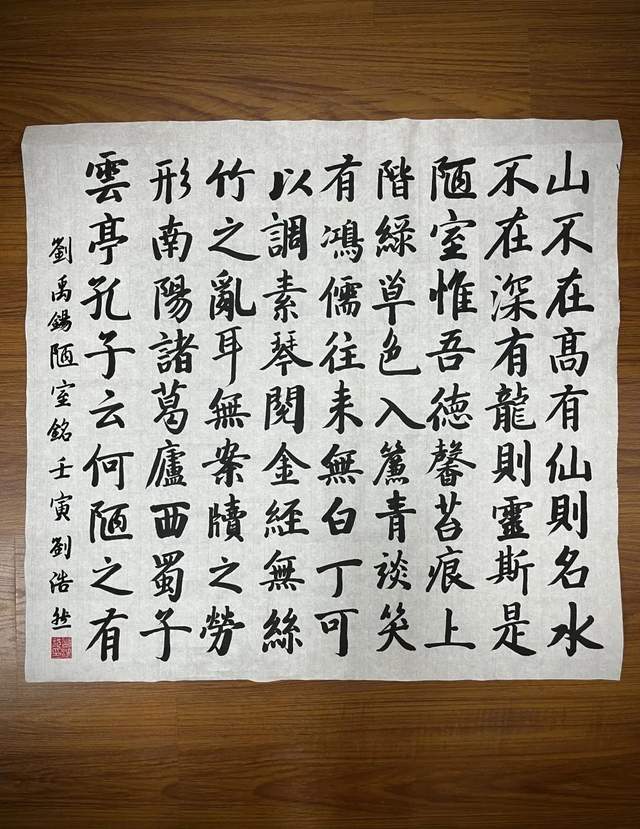 山不在高有仙則名水
不在深有龍則靈斯是
陋室惟吾德馨苔痕上
階綠草色入簾青談笑
有鴻儒往来無白丁可
以調素琴閱金經無絲
竹之亂耳無案牘之勞
形南陽諸葛廬西蜀子
雲亭孔子云何陋之有
劉禹錫陋室銘壬寅劉浩然